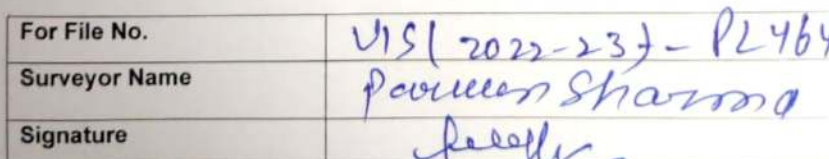 For File No. VIS(2022-23)-PL464
Surveyor Name Parveen Sharma
Signature